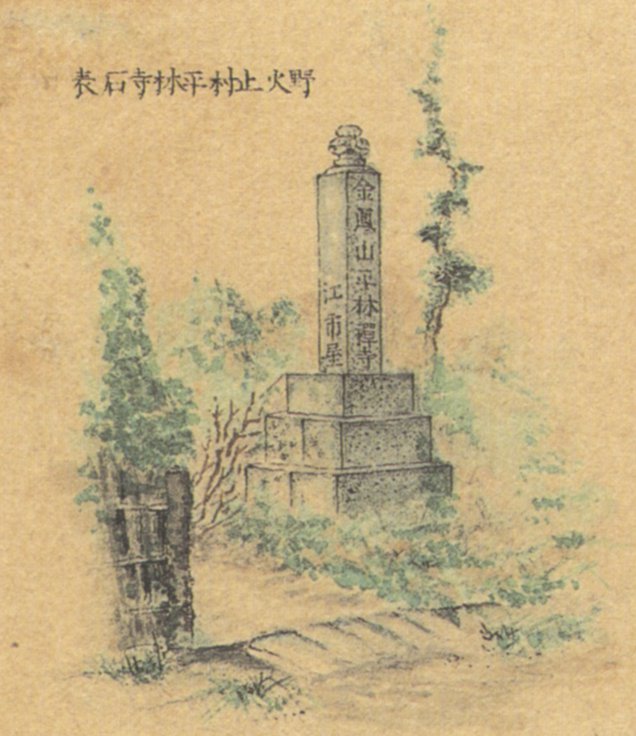 野火止村平林寺石表
金鳳山平林禪寺
江市屋